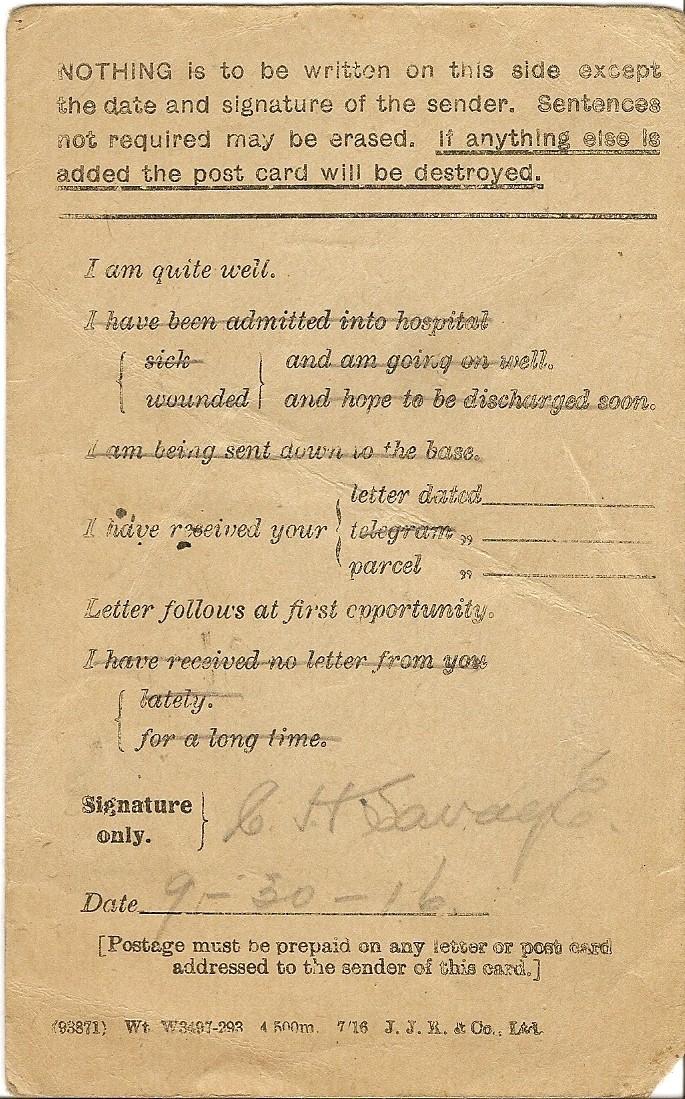 NOTHING is to be written on this side except
the date and signature of the sender. Sentences
not required may be erased. If anything else is
added the post card will be destroyed.
I am quite well.
I have been admitted into hospital
sick and am going on well.
wounded and hope to be discharged soon.
I am being sent down to the base.
letter dated
I have received your telegram „
parcel „
Letter follows at first opportunity.
I have received no letter from you
lately.
for a long time.
Signature
only. C. H. Savage.
Date 9-30-16.
[Postage must be prepaid on any letter or post card
addressed to the sender of this card.]
(93871) Wt. W3497-293 4,500m. 7/16 J. J. K. & Co., Ltd.